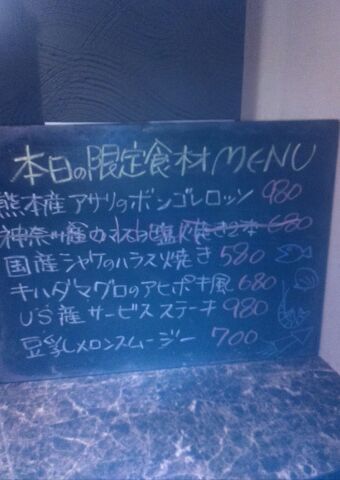 本日の限定食材MENU
熊本産アサリのボンゴレロッソ 980
神奈川産カマスの塩焼き2本 680
国産シャケのハラス焼き 580
キハダマグロのアヒポキ風 680
US産サービスステーキ 980
豆乳メロンスムージー 700